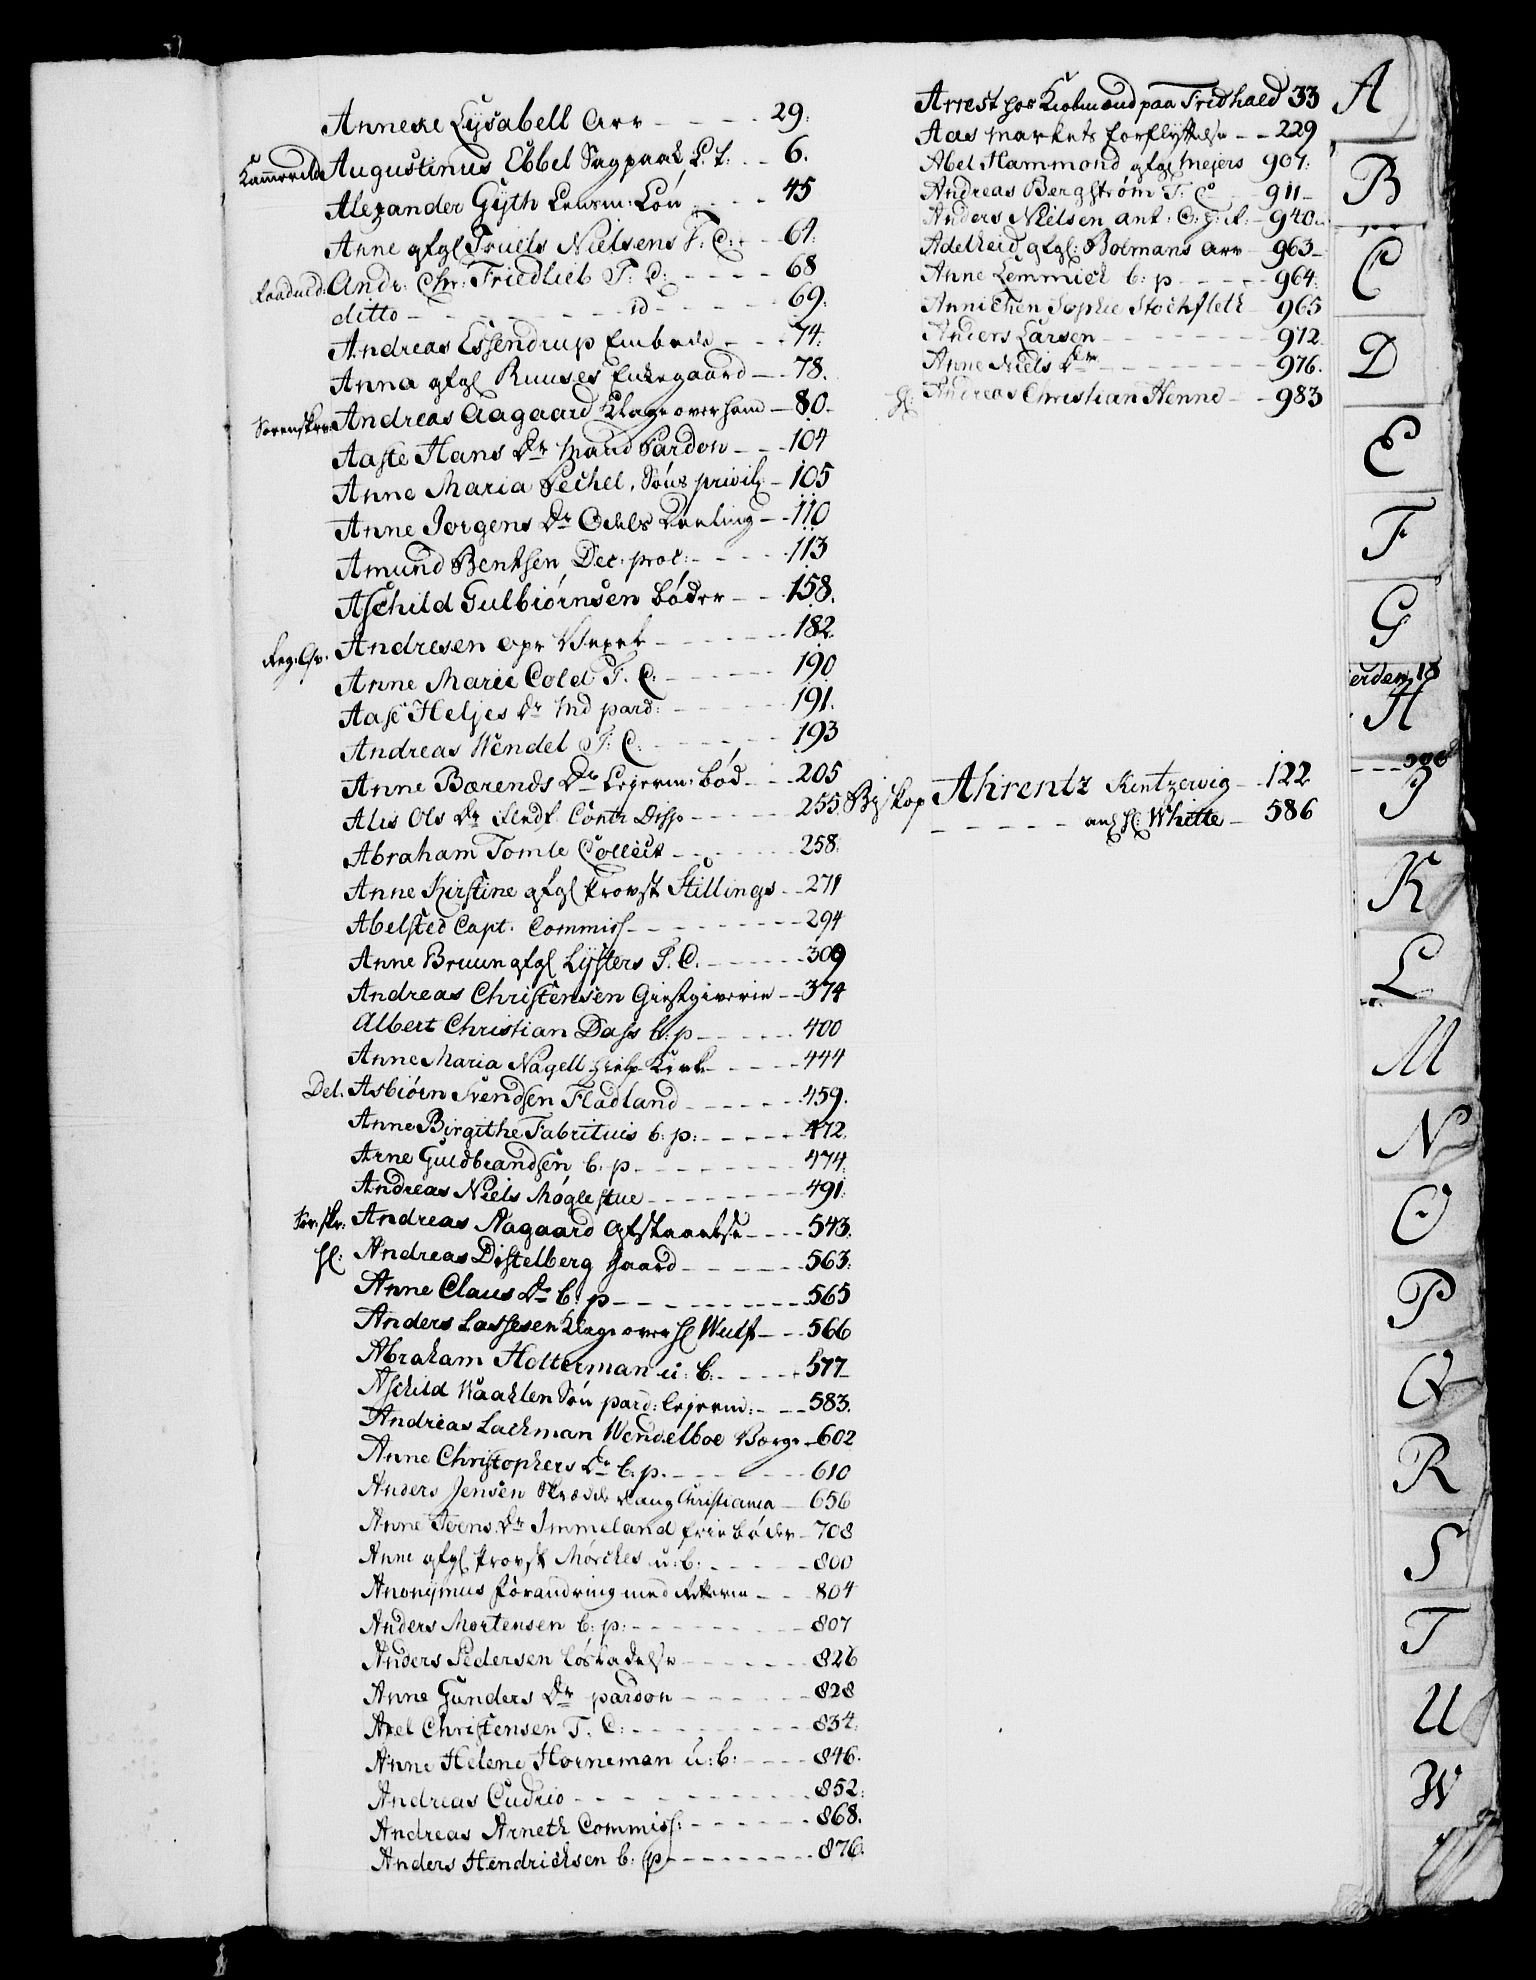 Anneke Lysabell Arv - - - - 29:
Augustinus Ebbel Sagpaak L. t: - - 6.
Alexander Gyth Lensm: Løn - - - 45
Anne afgl Truels Nielsens F: C: - - 61:
Raadmd: Andr: Chr: Friedlieb F: C: - - - - 68
ditto - - - - - - id - - - - 69:
Andreas Essendrup Embede - - - 74:
Anna afgl Ruuses Enkegaard - - 78.
Sorenskr: Andreas Aagaard Klage over ham - 80.
Aaste Hans Dr Mand Pardon - - 104
Anne Maria Pechel, Søns privil: - 105
Anne Jorgens Dr Odels Deeling - - 110
Amund Bentsen Dec: proc: - - - 113
Aschild Gulbiørnsen bøder - - 158.
Reg: Qv. Andresen opr - - - - 182.
Anne Marie Cold F. C: - - - - 190
Aase Heljes Dr Md pard: - - - - 191.
Andreas Wendel F: C: - - - - 193
Anne Bærends Dr Lejerm: bød - - 205
Alis Ols Dr Contr Disp - - - - 255
Abraham Tomle Collect - - - - 258:
Anne Kirstine afgl Provst Stillings - - 271
Abelsted Capt. Commiss - - - - 294
Anne Bruun afgl Lysters F. C. - - - - 309
Andreas Christensen Giestgiverie - - 374
Albert Christian Dass b: p - - - - 400
Anne Maria Nagell hielp Kirke - - - - 444
Del. Asbiørn Svendsen Fladland - - - - 459.
Anne Birgithe Fabritius b: p: - - - - 472.
Arne Guldbrandsen b: p - - - - 474:
Andreas Niels Møglestue - - - - 491:
Sor: skr: Andreas Aagaard Afstaaelse - - - 543:
Hl: Andreas Distelberg Gaard - - - - 563:
Anne Claus Dr b: p - - - - 565
Anders Lassesen Klage over Hl Wulf - - 566
Abraham Holterman u: b: - - - - 577
Aschild Waahlen Søn pard: lejerm: - - 583.
Andreas Lachman Wendelboe Værge - 602
Anne Christophers Dr b: p. - - - - 610
Anders Jensen Skræder Laug Christiania - 656
Anne Toens Dr Immeland frie bøder - 708
Anne afgl Provst Mørches u: b: - - - - 800
Anonymus forandring med - - - 804
Anders Mortensen b: p: - - - - 807
Anders Pedersen løsladelse - - - - 826
Anne Gunders Dr pardon - - - - 828
Axel Christensen F. C: - - - - 834:
Anne Helene Horneman u: b: - - - - 846.
Andreas Cudrio - - - - 852:
Andreas Arneth Commiss: - - - - 868.
Anders Hendrichsen b: p - - - - 876.
Arrest hos Kiøbmænd paa Fridhald 33
Aas Markets forflyttelse - - 229
Abel Hammond afgl Mejers 907:
Andreas Bergstrøm F: C - - 911
Anders Nielsen ant: - 940
Adelheid afgl: Bolmans Arv - 963
Anne Lemmich b: p - - - - 964:
Annichen Sophie Stochfleth - 965
Anders Larsen - - - - 972.
Anne Niels Dr - - - - 976.
Hl: Andreas Christian Henne - - 983
Biskop Ahrentz - 122
- - - - - ang Hl: Whitte - 586
A
B
C
D
E
F
G
erden 18
H
J
K
L
M
N
O
P
Q
R
S
T
U
W